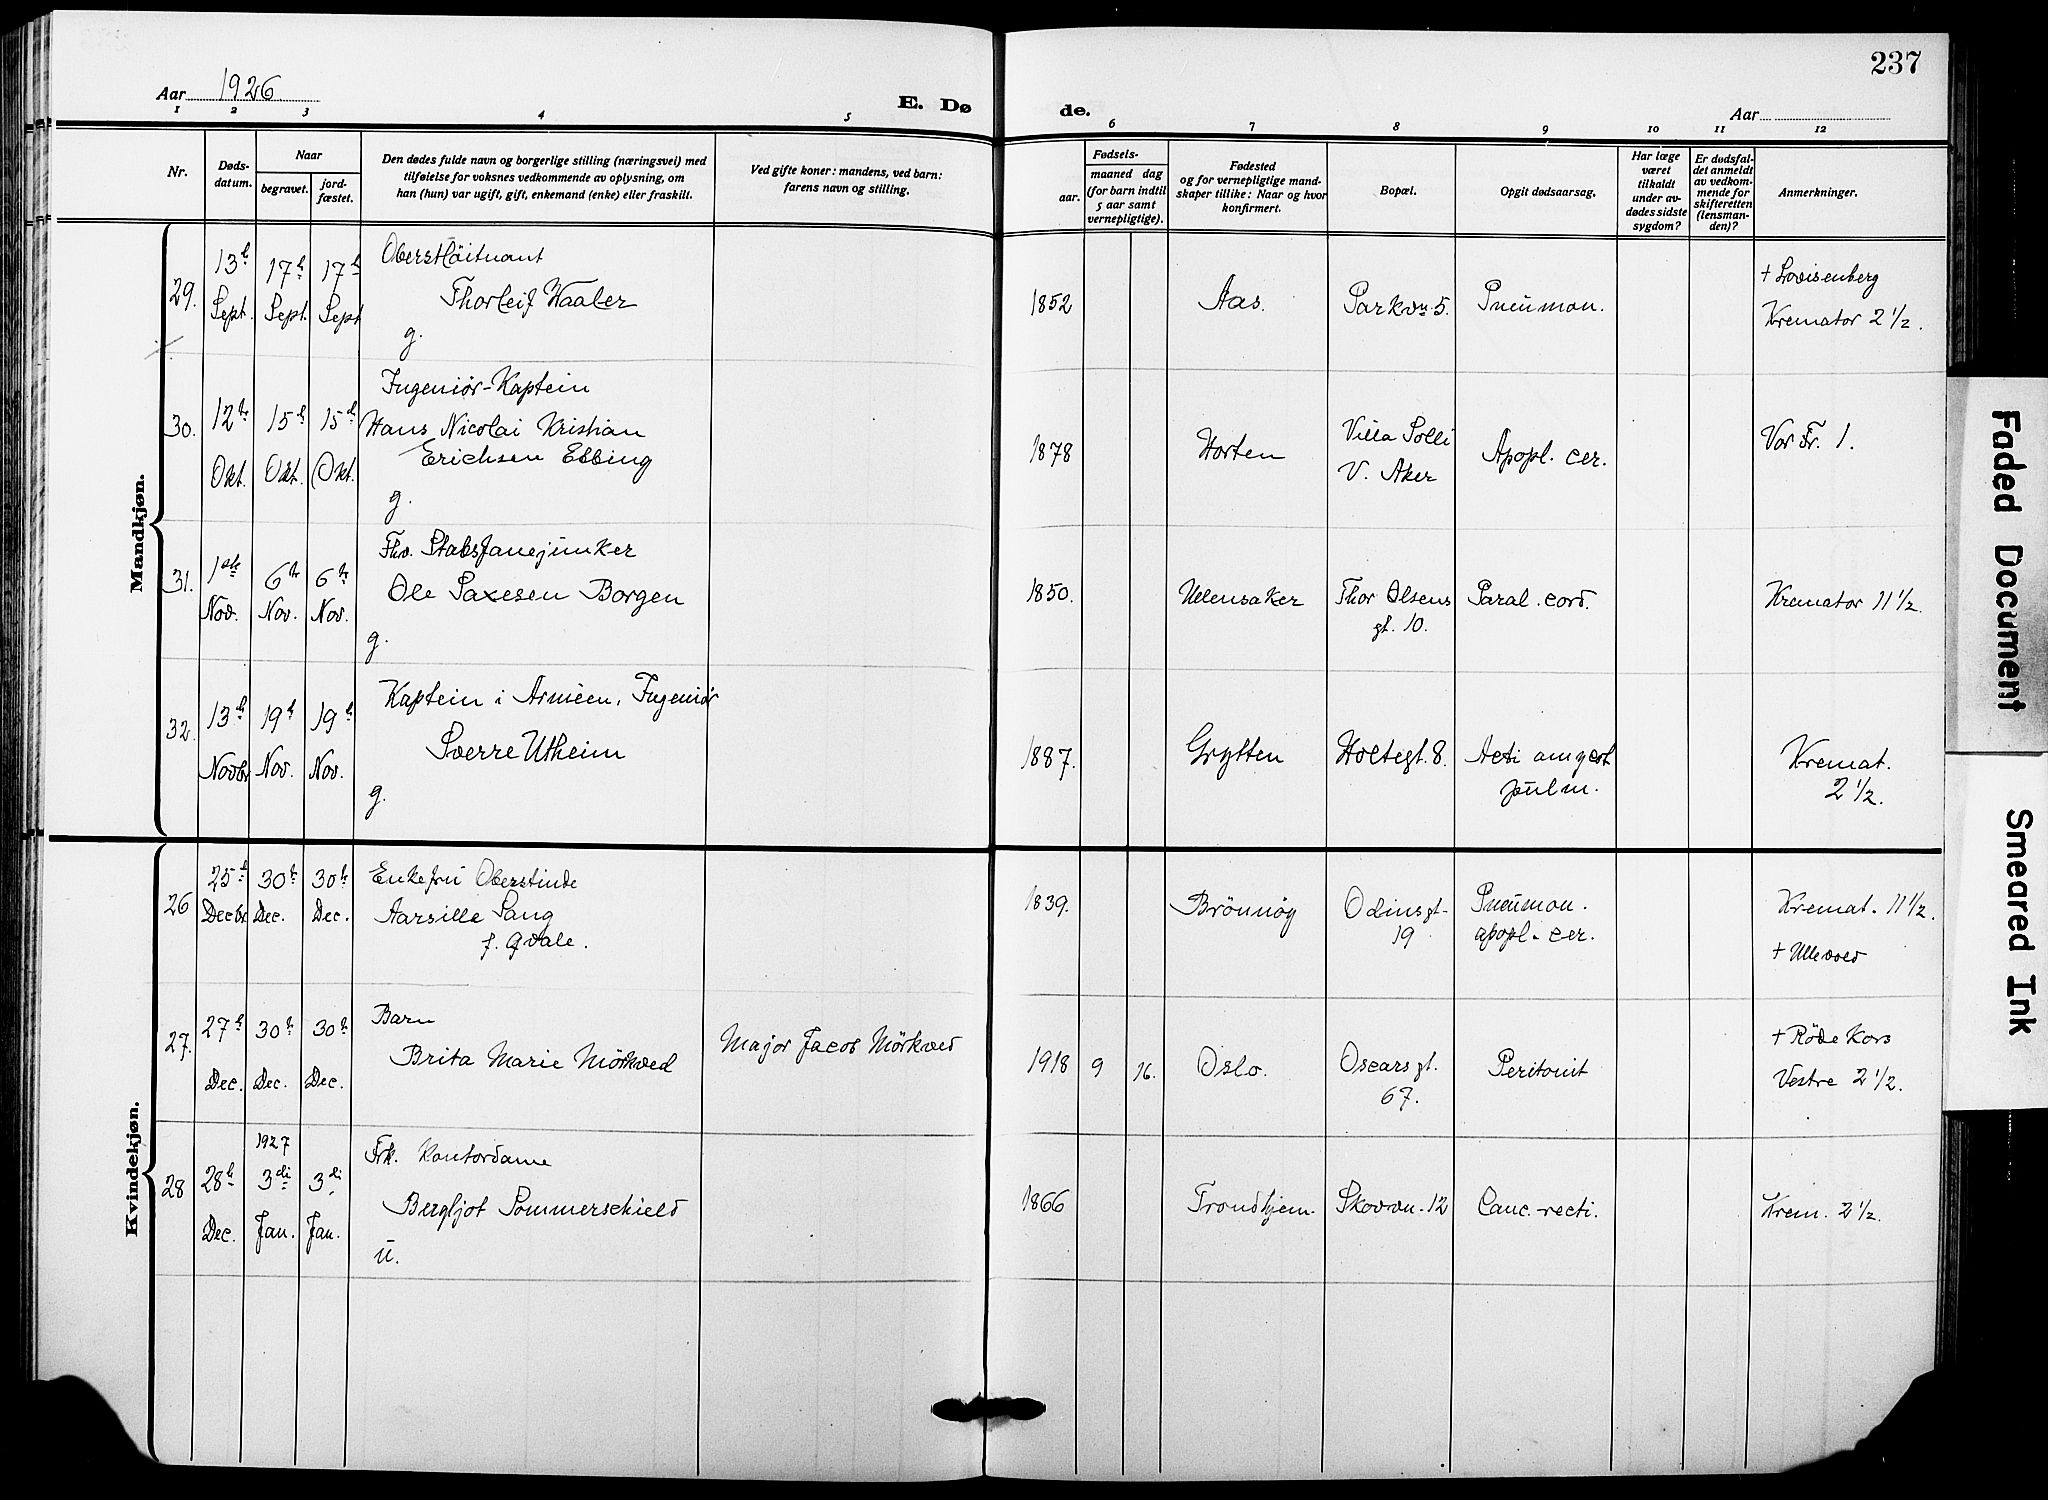 237
Aar 1926
E. Dø
de.
Aar
1 2 3 4 5 6 7 8 9 10 11 12
Nr.
Døds-
datum.
Naar
begravet.
jord-
fæstet.
Den dødes fulde navn og borgerlige stilling (næringsvei) med
tilføielse for voksnes vedkommende av oplysning, om
han (hun) var ugift, gift, enkemand (enke) eller fraskilt.
Ved gifte koner: mandens, ved barn:
farens navn og stilling.
Fødsels-
aar.
maaned dag
(for barn indtil
5 aar samt
vernepligtige).
Fødested
og for vernepligtige mand-
skaper tillike: Naar og hvor
konfirmert.
Bopæl.
Opgit dødsaarsag.
Har læge
været
tilkaldt
under av-
dødes sidste
sygdom?
Er dødsfal-
det anmeldt
av vedkom-
mende for
skifteretten
(lensman-
den)?
Anmerkninger.
Mandkjøn.
29.
13de
Sept.
17de
Sept.
17de
Sept
Oberstløitnant
Thorleif Waaler
g.
1852
Aas.
Parkvn. 5.
Pneumon.
+ Lovisenberg
Kremator 2 1/2.
30.
12te
Okt.
15de
Okt.
15de
Okt.
Ingeniør-Kaptein
Hans Nicolai Kristian
Erichsen Ebbing
g.
1878
Horten
Villa Solli
V. Aker
Apopl. cer.
Vor Fr. 1.
31.
1ste
Nov.
6te
Nov.
6te
Nov.
Fhv. Stabsfanejunker
Ole Saxesen Borgen
g.
1850.
Ullensaker
Thor Olsens
gt. 10.
Paral. cord.
Kremator 11 1/2.
32.
13de
Novbr
19de
Nov.
19de
Nov.
Kaptein i Armeen, Ingeniør
Sverre Utheim
g.
1887.
Grytten
Holtegt. 8.
pulm.
Kremat.
2 1/2.
Kvindekjøn.
26
25de
Decbr.
30te
Dec.
30te
Dec.
Enkefru Oberstinde
Aarsille Sang
f. Qvale.
1839.
Brönnöy
Odinsgt.
19
Pneumon.
apopl. cer.
Kremat. 11 1/2.
+ Ullevold
27.
27de
Dec.
30te
Dec.
30te
Dec.
Barn
Brita Marie Mörkved
Major Jacob Mörkved
1918 9 16.
Oslo.
Oscarsgt.
67.
Peritonit
+ Röde Kors
Vestre 2 1/2.
28
28de
Dec.
1927
3die
Jan.
3die
Jan.
Frk. Kontordame
Bergljot Sommerschield
u.
1866
Trondhjem.
Skovvn. 12
Canc. recti.
Krem. 2 1/2.
Faded Document
Smeared Ink